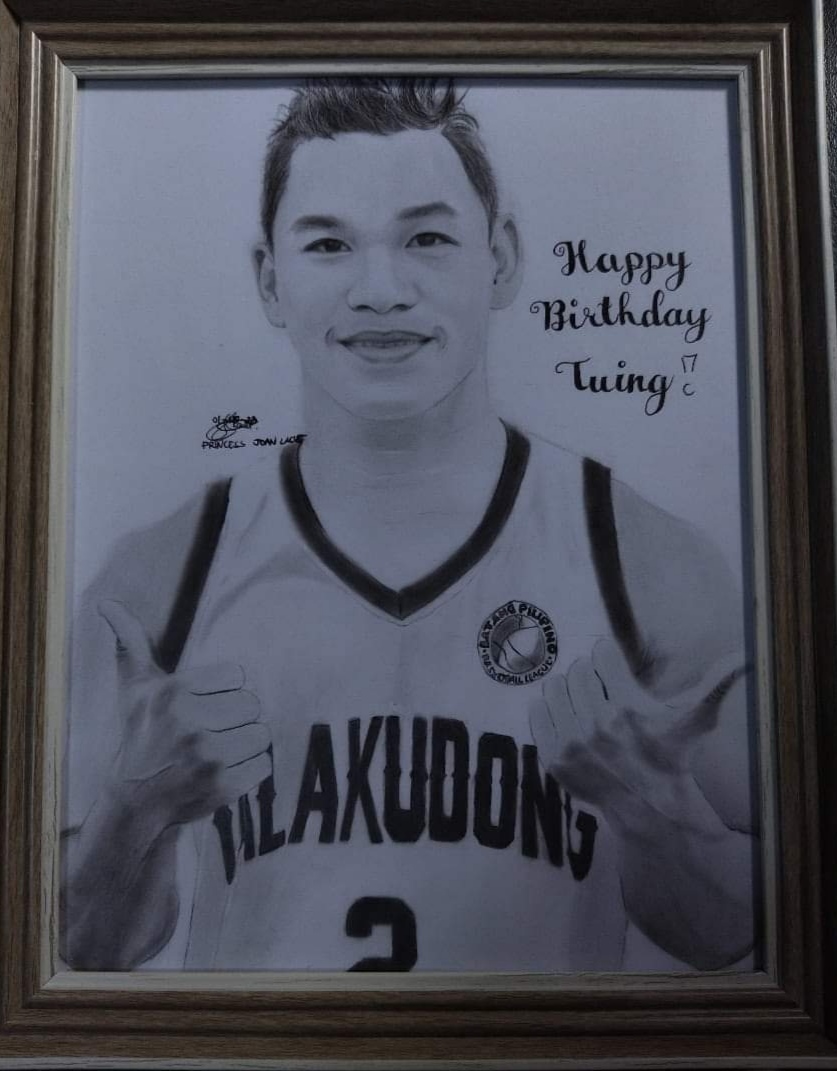 Happy
Birthday
Tuing!
PRINCESS JOAN
BATANG PILIPINO
BASKETBALL LEAGUE
ALAKUDONG
2